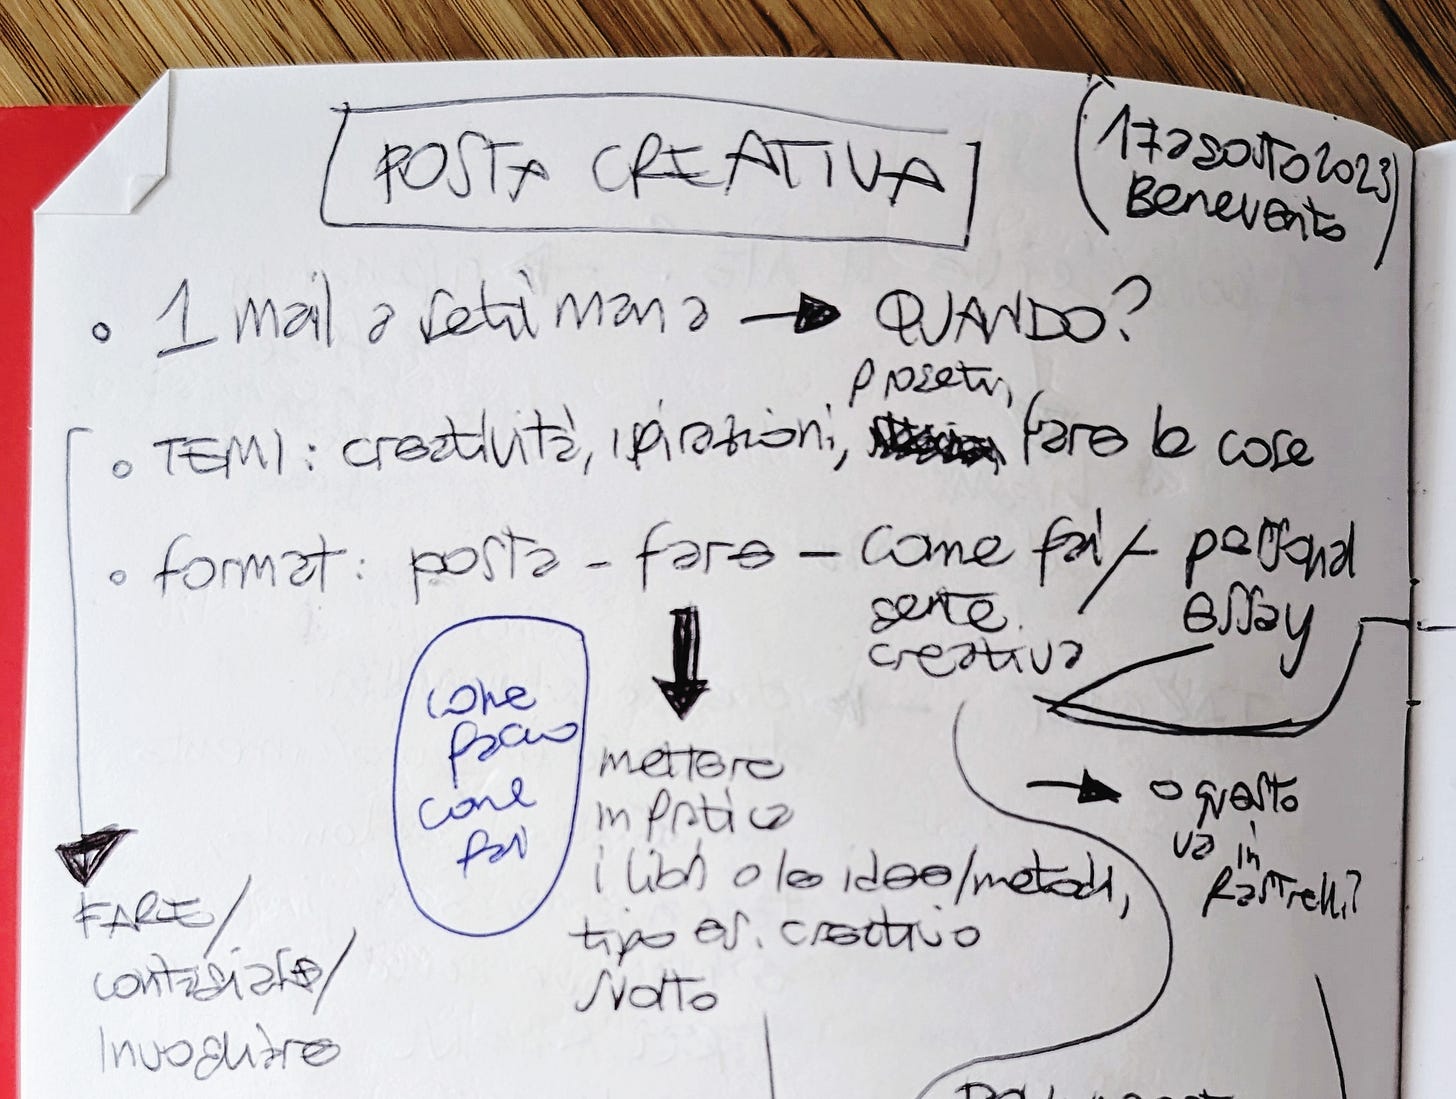 POSTA CREATIVA
(17 agosto 2023
Benevento)
• 1 mail a settimana → QUANDO?
progetti,
• TEMI: creatività, ispirazioni, fare le cose
• format: posta - fare - come fai / - personal
gente essay
creativa
come
faccio
come
fai
mettere
in pratica
i libri o le idee/metodi,
tipo es. creativo
svolto
→ o questo
va in
Rastrelli?
FARE/
contagiare/
invogliare